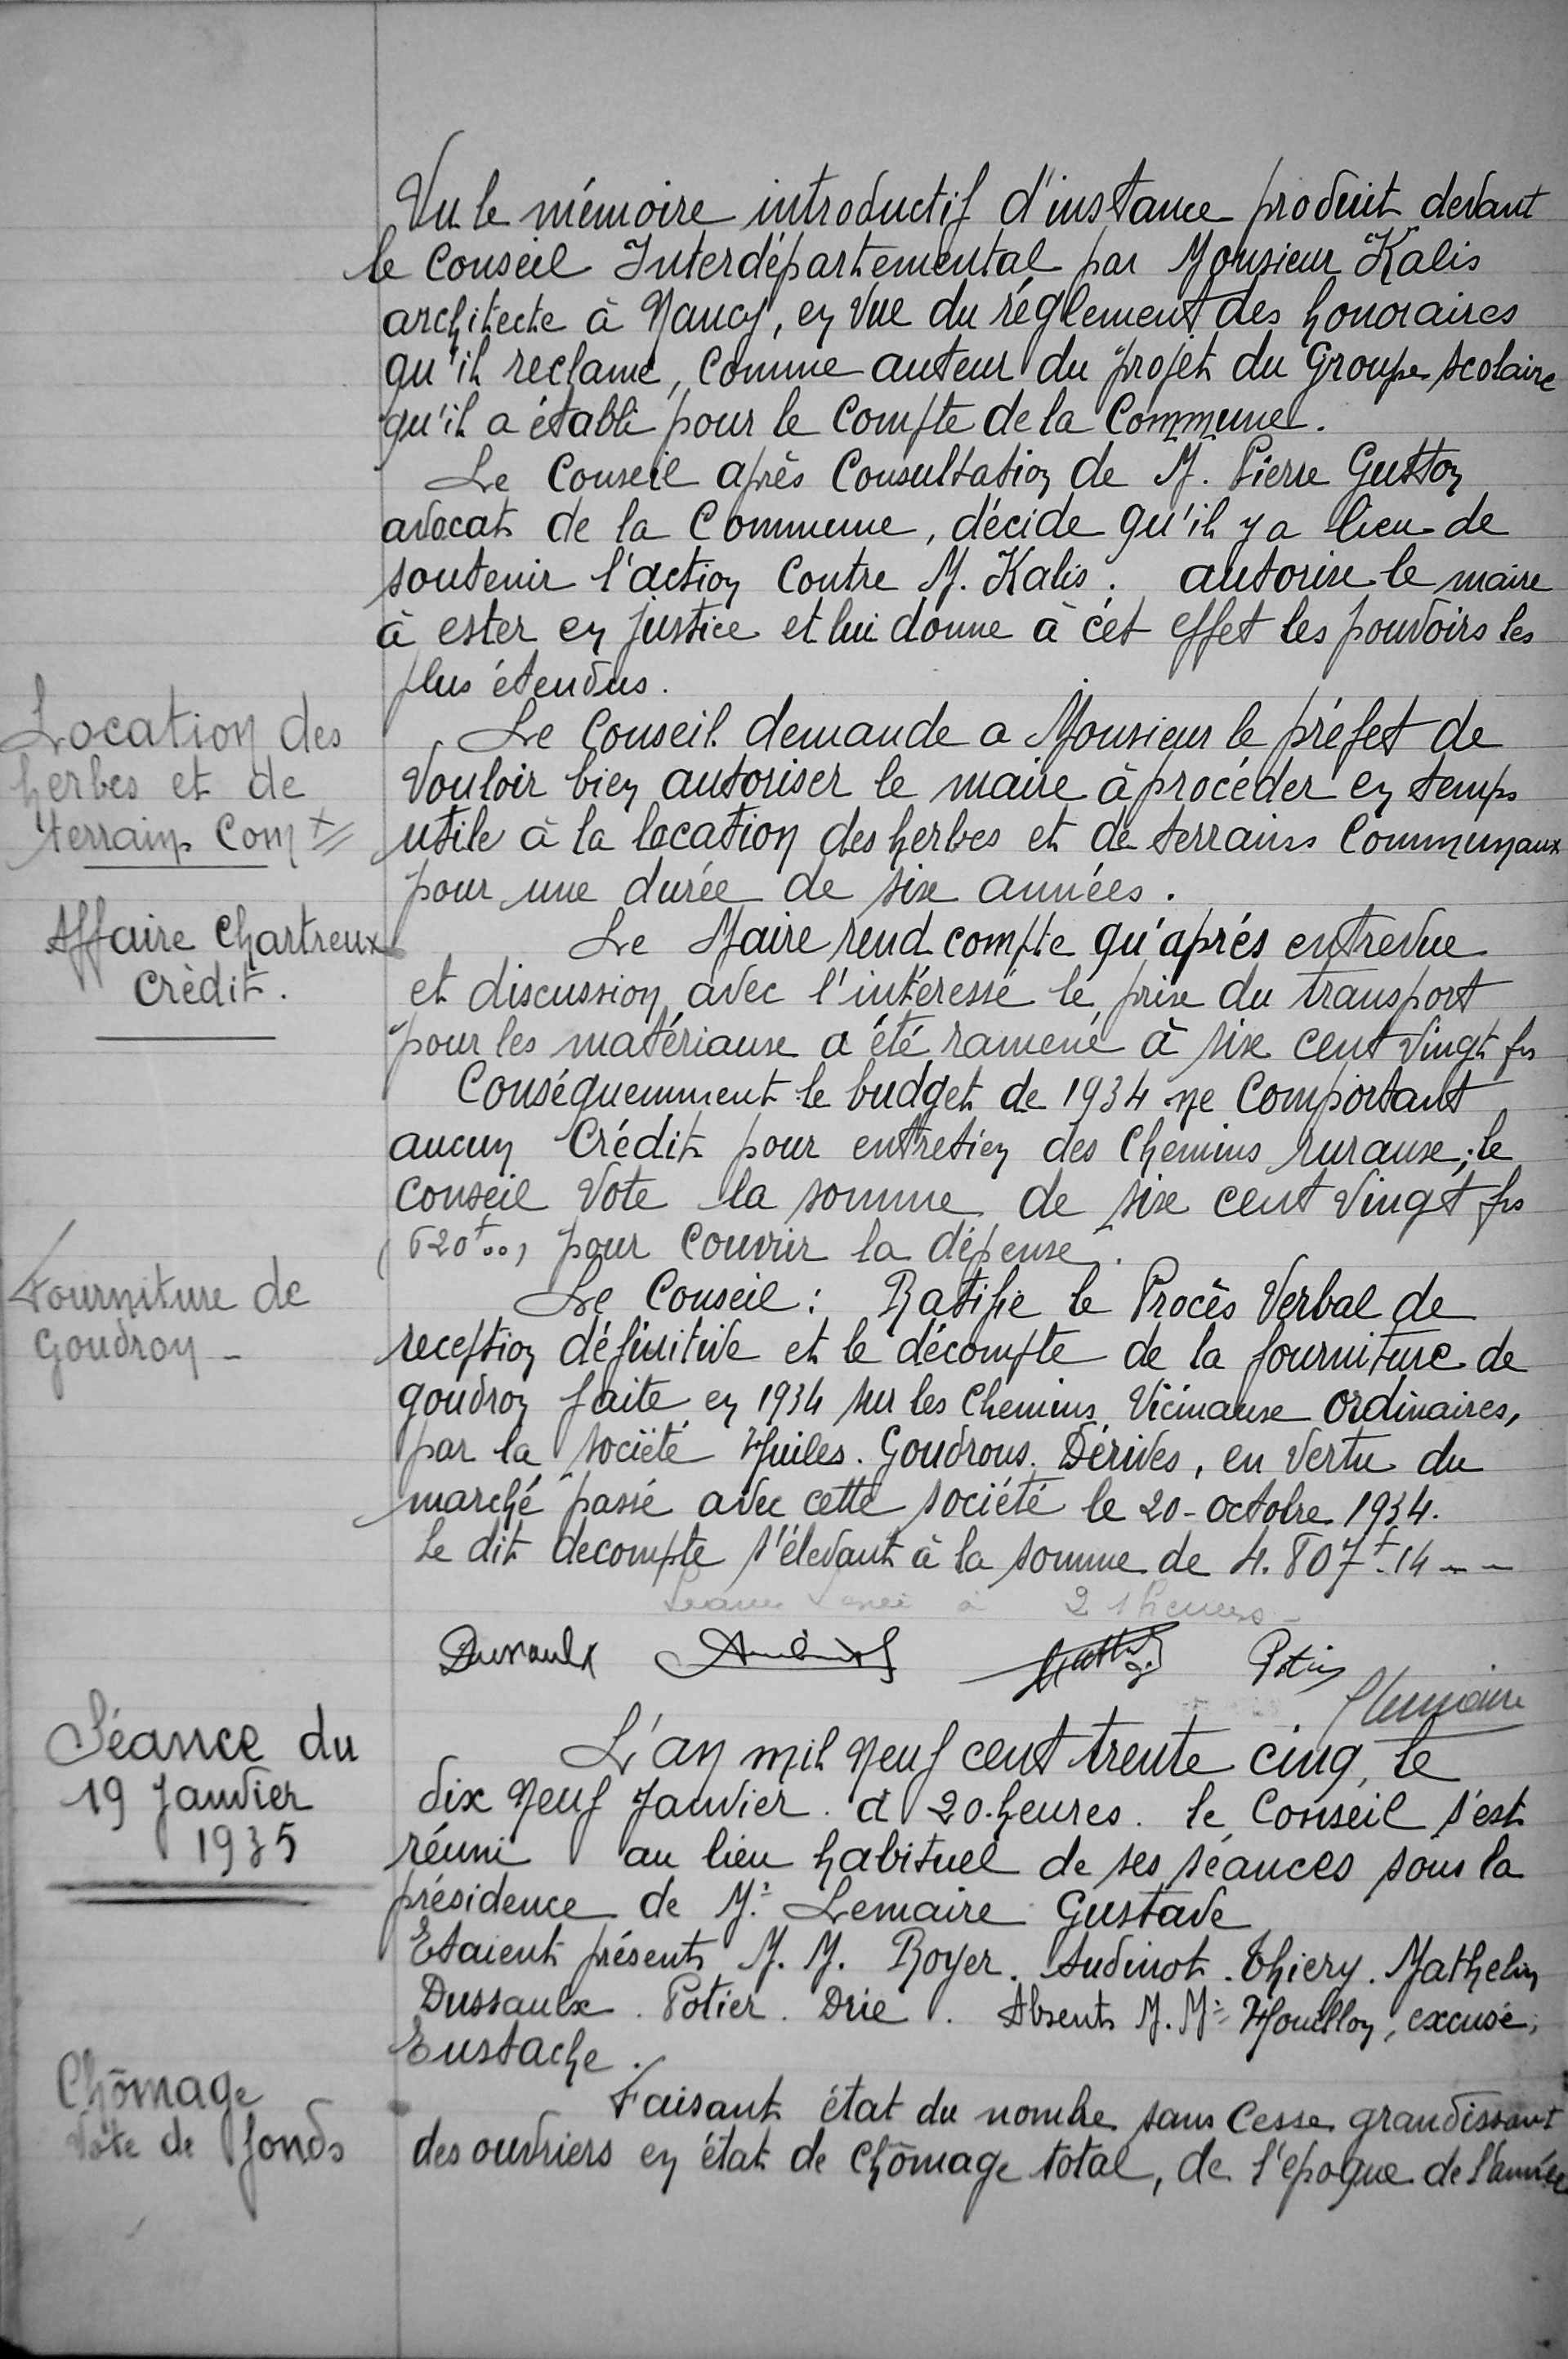 Vu le mémoire introductif d'instance produit devant
le Conseil Interdépartemental par Monsieur Kalis
architecte à Nancy, en vue du réglement des honoraires
qu'il reclame, comme auteur du projet du Groupe scolaire
qu'il a établi pour le Compte de la Commune.
Le Conseil après Consultation de M. Pierre Gutton
avocat de la Commune, décide qu'il y a lieu de
soutenir l'action Contre M. Kalis. autorise le maire
à ester en justice et lui donne à cet effet les pouvoirs les
plus étendus.
Location des
herbes et de
terrains Comx
Le Conseil demande a Monsieur le préfet de
Vouloir bien autoriser le maire à procéder en temps
utile à la location des herbes et de terrains Communaux
pour une durée de six années.
Affaire Chartreux
Crèdit.
Le Maire rend compte qu'aprés entrevue
et discussion avec l'intéressé le prix du transport
pour les matériaux a été ramené à six cent vingt frs
Conséquemment le budget de 1934 ne Comportant
aucun Crédit pour entretien des Chemins ruraux; le
Conseil Vote la somme de six cent Vingt frs
(620f00) pour Couvrir la dépense.
Fourniture de
Goudron -
Le Conseil: Ratifie le Procès Verbal de
reception définitive et le décompte de la fourniture de
goudron faite en 1934 sur les Chemins Vicinaux ordinaires,
par la société Huiles. Goudrons. Dérivés, en vertu du
marché passé avec cette société le 20-octobre 1934.
Le dit decompte s'élevant à la somme de 4.807f.14 - -
Séance Levée à 21 heures -
Dussaulx Audinot Potier
Glemaire
Séance du
19 Janvier
1935
L'an mil neuf cent trente cinq, le
dix neuf Janvier. à 20.heures. le Conseil s'est
réuni au lieu habituel de ses séances sous la
présidence de Mr Lemaire Gustave
Etaient présents M. M. Royer. Audinot. Thiery. Mathelin
Dussaulx. Potier. Drié. Absents M. Mrs Houillon, excusé,
Eustache.
Chômage
Vote de fonds
Faisant état du nombre sans Cesse grandissant
des ouvriers en état de Chômage total, de l'epoque de l'année